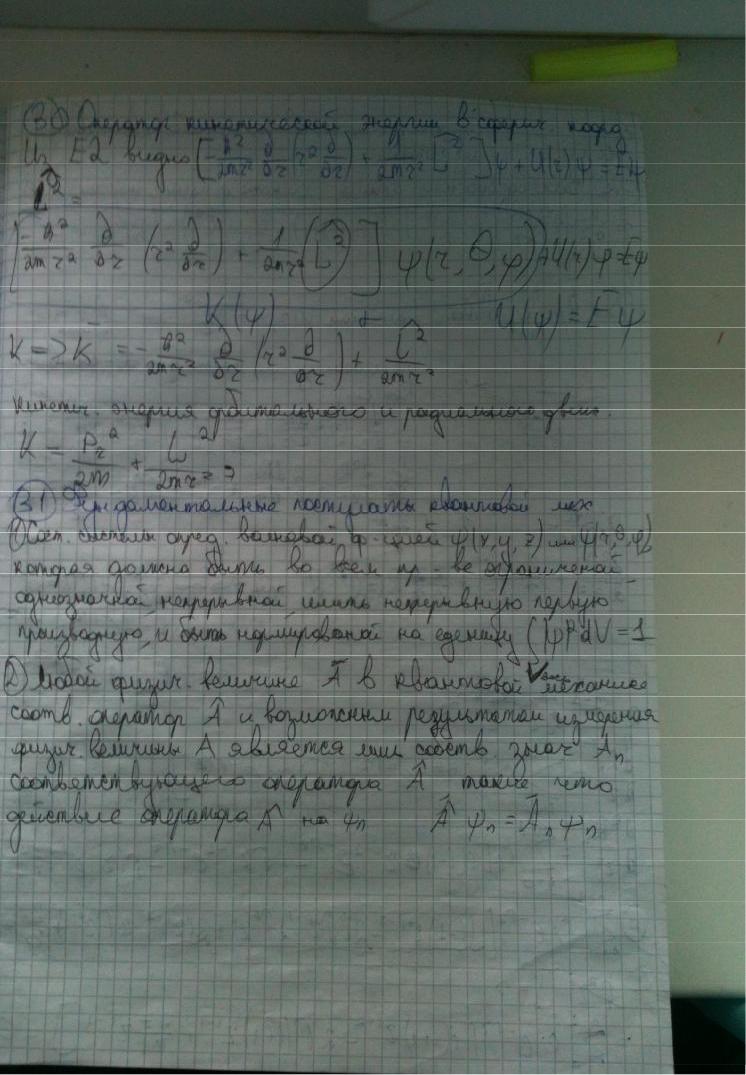 (30) Оператор кинетической энергии в сферич коорд
Из E2 видно [-ħ²/2mr² ∂/∂r (r² ∂/∂r) + 1/2mr² L̂²] ψ + U(r)ψ = Eψ
L̂² =
[-ħ²/2mr² ∂/∂r (r² ∂/∂r) + 1/2mr² (L̂²)] ψ(r, θ, φ) + U(r)ψ = Eψ
K(ψ) + U(ψ) = Eψ
K => K̂ = -ħ²/2mr² ∂/∂r (r² ∂/∂r) + L̂²/2mr²
кинетич. энергия орбитального и радиального движ.
K = Pr²/2m + L²/2mr²
(31) Фундаментальные постулаты квантовой мех
1) Сост. системы опред. волновой ф-цией ψ(x, y, z) или ψ(r, θ, φ)
которая должна быть во всем пр-ве ограниченой
однозначной, непрерывной, иметь непрерывную первую
производную, и быть нормированой на еденицу ∫|ψ|²dV = 1
2) Любой физич. величине A в квантовой механике
соотв. оператор Â и возможным результатом измерения
физич. величины A является лиш собств. знач Aₙ
соответствующего оператора Â такие что
действие оператора Â на ψₙ Â ψₙ = Aₙ ψₙ